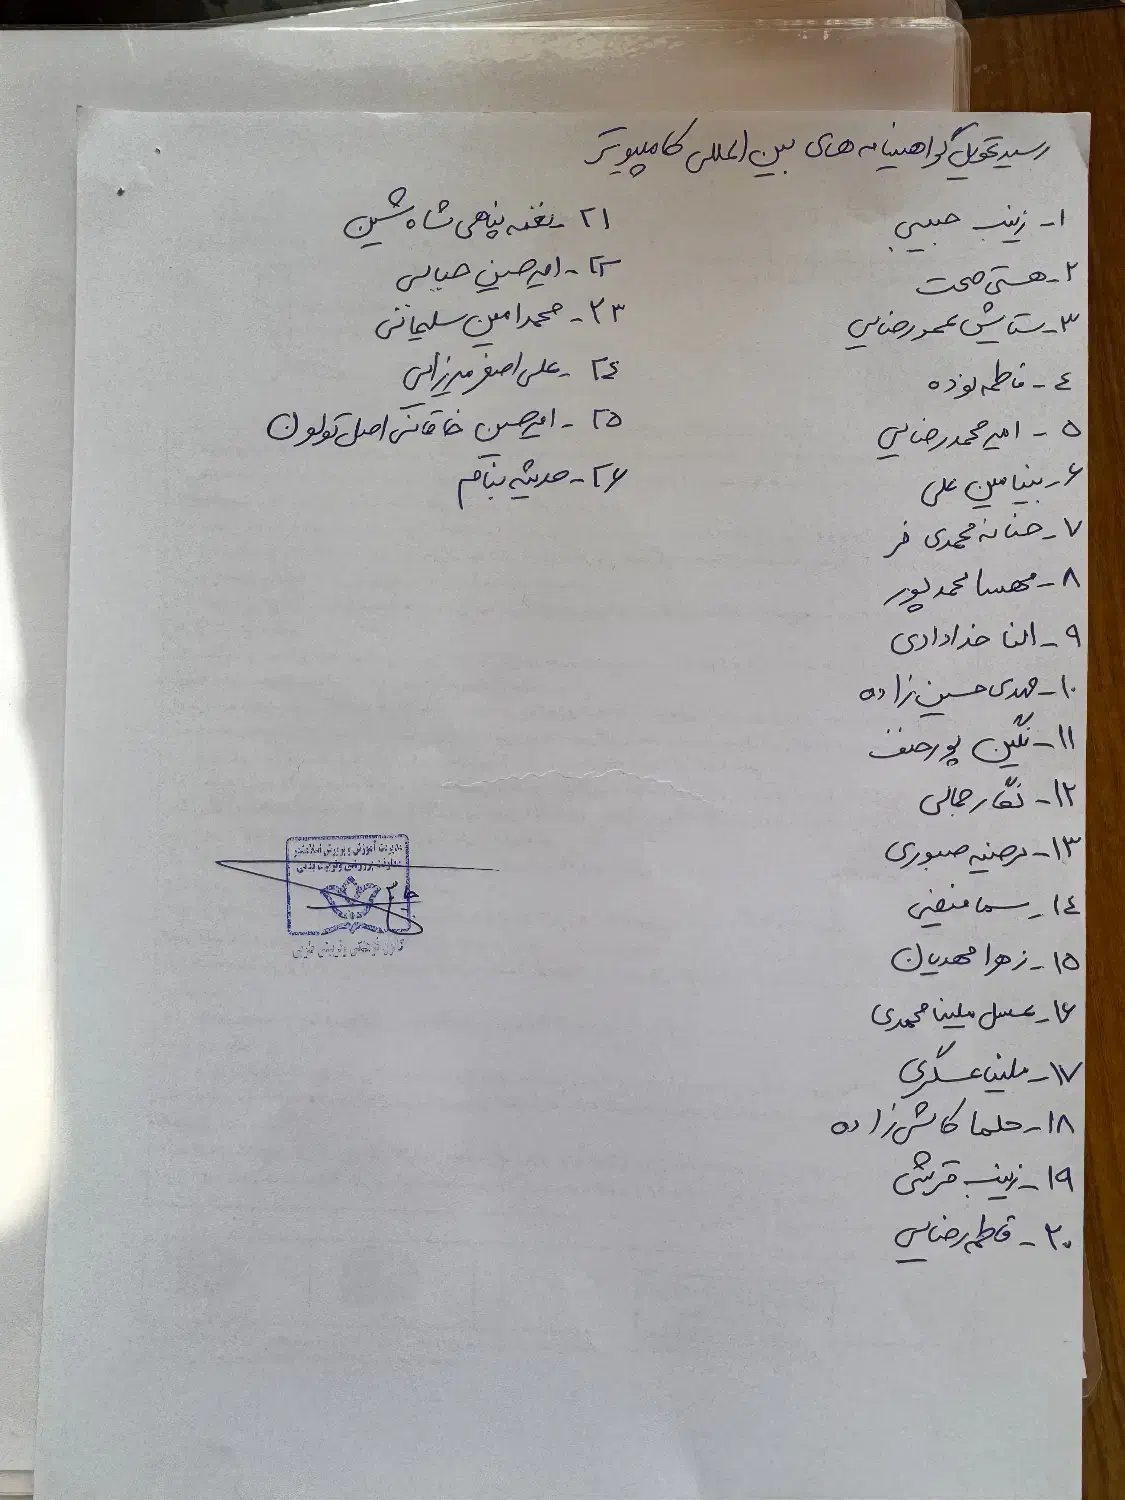 رسید تحویل گواهینامه های بین المللی کامپیوتر
۱- زینب حبیبی
۲- هستی صحت
۳- ستایش عمورضایی
۴- فاطمه نوده
۵- امیرمحمد رضایی
۶- بنیامین علی
۷- حنانه محمدی فر
۸- مهسا محمدپور
۹- النا خدادادی
۱۰- مهدی حسین زاده
۱۱- نگین پورحنف
۱۲- نگار جمالی
۱۳- مرضیه صبوری
۱۴- سما فیضی
۱۵- زهرا مهدیان
۱۶- عسل ملینا محمدی
۱۷- ملینا عسگری
۱۸- حلما کاشی زاده
۱۹- زینب قرشی
۲۰- فاطمه رضایی
۲۱- نغمه پناهی شاه نشین
۲۲- امیرحسین
۲۳- محمدامین سلیمانی
۲۴- علی اصغر میرزایی
۲۵- امیرحسین خاقانی اصل تولون
۲۶- حدیثه بنام
مدیریت آموزش و پرورش اسلامشهر
معاونت پرورشی و تربیت بدنی
کانون فرهنگی و تربیتی طوبی